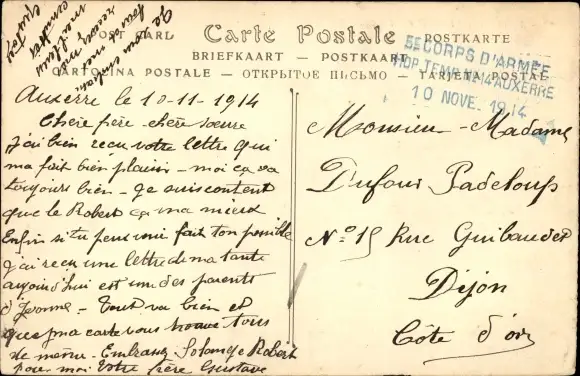 POST CARD Carte Postale POSTKARTE
BRIEFKAART - POSTKAART
CARTOLINA POSTALE - ОТКРЫТОЕ ПИСЬМО - TARJETA POSTAL
5e CORPS D'ARMÉE
HOP. TEMP. N 4 AUXERRE
10 NOVE. 1914
Auxerre le 10-11-1914
Chère frère - chère sœure
j'ai bien recu votre lettre qui
ma fait bien plaisir - moi ça va
toujours bien - Je suis content
que le Robert ça va mieux
Enfin si tu peus venir fait ton possible
j'ai recu une lettre de ma tante
aujourd'hui est une des parents
d'Yvonne - Tout va bien et
que ma carte vous trouve tous
de même. Embrassez Solange Robert
pour moi Votre frère Gustave
Monsieur - Madame
Dufour Padeloup
No 15 Rue Guibaudet
Dijon
Côte d'or